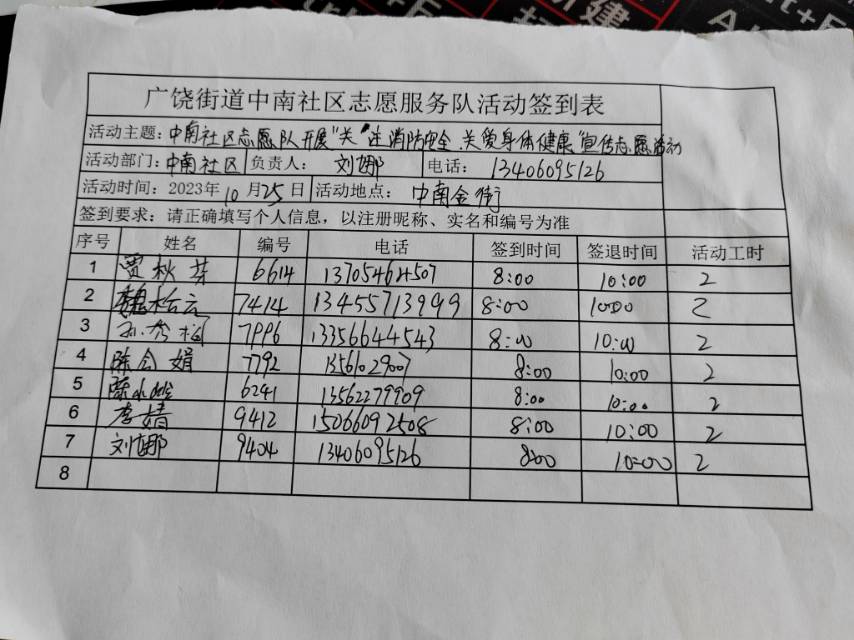 广饶街道中南社区志愿服务队活动签到表
活动主题: 中南社区志愿队开展"关"注消防安全、关爱身体健康"宣传志愿活动
活动部门: 中南社区 负责人: 刘娜 电话: 13406095126
活动时间: 2023年10月25日 活动地点: 中南金街
签到要求: 请正确填写个人信息，以注册昵称、实名和编号为准
序号 姓名 编号 电话 签到时间 签退时间 活动工时
1 贾秋芬 6614 13705464507 8:00 10:00 2
2 魏松云 7414 13455713999 8:00 1000 2
3 7996 13356644543 8:00 10:00 2
4 陈会娟 7792 13561029007 8:00 10:00 2
5 陈 6241 13562279909 8:00 10:00 2
6 李婧 9412 15066092508 8:00 10:00 2
7 刘娜 9404 13406095126 8:00 10:00 2
8